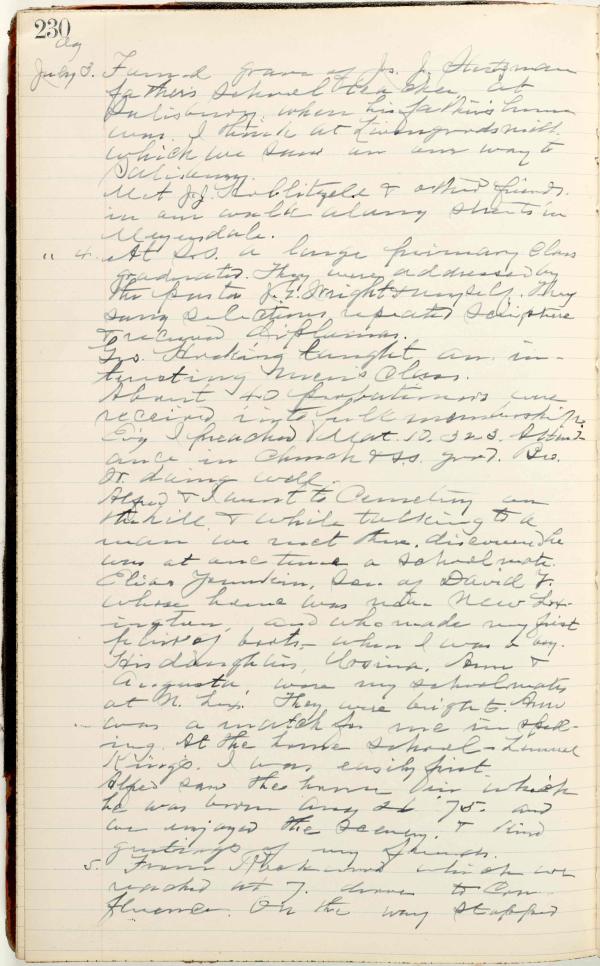 230
July 3. Found grave of Js. J. Stutzman
father's school teacher, at
Salisbury, where his father's home
was. I think at Livengoods mill.
which we saw on our way to
Salisbury.
Met J.J. Hoblitzell & other friends.
in our walk along streets in
Meyersdale.
" 4. At S.S. a large primary class
graduated. They were addressed by
the pastor J.E. Wright & myself. They
sang selections, repeated Scripture
& received diplomas.
Geo. Hocking taught an in-
teresting men's class.
About 40 probationers were
received into full membership.
Ev'g I preached Matt. 12. 32 3. Attend-
ance in Church & S.S. good. Bro.
W. doing well.
Alfred & I went to Cemetery on
the hill. & while talking to a
man we met there, discovered he
was at one time a schoolmate.
Elias Younkin, son of David Y.
whose home was near New Lex-
ington, and who made my first
pair of boots,- when I was a boy.
His daughters, Rosina, Ann &
Augusta, were my schoolmates
at N. Lex. They were bright. Ann
was a match for me in spell-
ing. At the home school - Lemuel
King's. I was easily first.
Alfred saw the house in which
he was born Aug 26 '75. and
we enjoyed the scenery, & kind
greetings of my friends.
5. From Rockwood which we
reached at 7. drove to Con-
fluence. On the way stopped